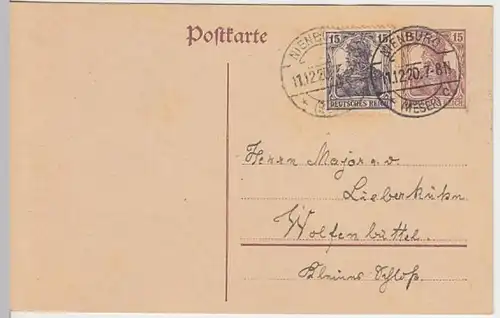 Postkarte
15 15
DEUTSCHES REICH
15
REICH
NIENBURG
11.12.20.
NIENBURG
11.12.20.7-8N
(WESER)
Herrn Major a. D.
Lieberkühn
Wolfenbüttel.
Kleines Schloß.